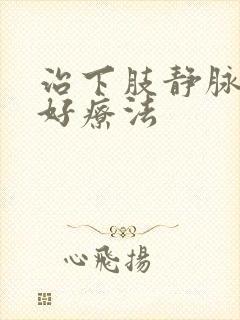 治下肢静脉
好療法
心飛揚